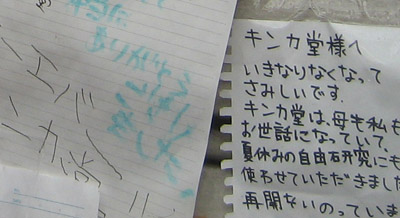 本当に
ありがとう
ござい
ました
キンカ堂様へ
いきなりなくなって
さみしいです。
キンカ堂は、母も私も
お世話になっていて、
夏休みの自由研究にも
使わせていただきました
再開をいのっていま